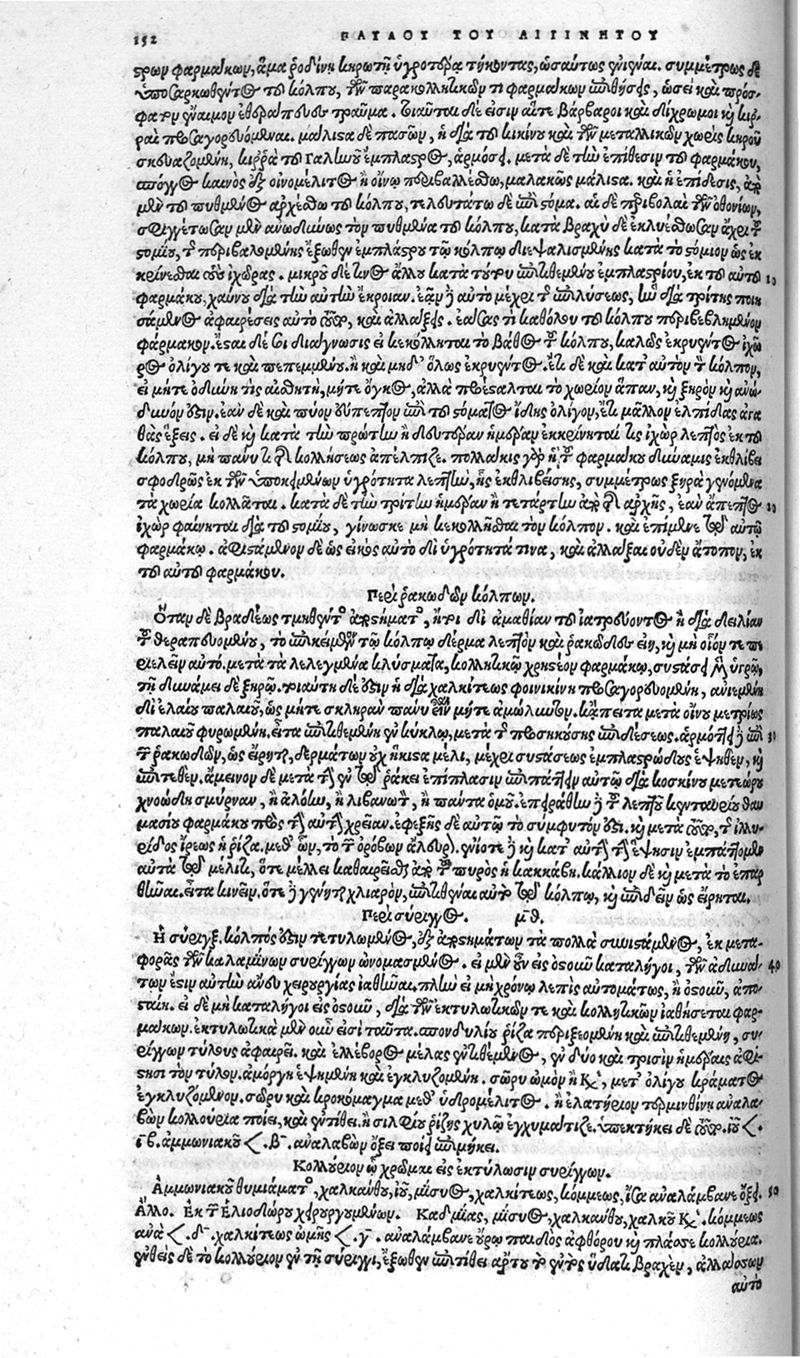 152 ΠΑΥΛΟΥ ΤΟΥ ΑΙΓΙΝΗΤΟΥ
φαρμάκων, ἅμα ῥοδίνῃ κηρωτῇ ὑγροτέρᾳ τήκοντας, ὡσαύτως συμμέτρως δὲ
τοῦ κόλπου, τῶν παρακολλητικῶν τι φαρμάκων ἐπιθήσεις, ὡσεὶ καὶ πρόσ-
φατον ἔναιμον τραῦμα. τοιαῦται δέ εἰσιν αἵτε βάρβαροι καὶ δίχρωμοι κỳ κιρ-
ραὶ προσαγορευόμεναι. μάλιστα δὲ πασῶν, ἡ διὰ τοῦ κικίνου καὶ τῶν μεταλλικῶν χωρὶς κηροῦ
σκευαζομένη, κιρρὰ τοῦ Γαληνοῦ ἔμπλαστρος, ἁρμόσει. μετὰ δὲ τὴν ἐπίθεσιν τοῦ φαρμάκου,
σπόγγος καινὸς ἐξ οἰνομέλιτος ἢ οἴνου περιβαλλέσθω, μαλακῶς μάλιστα. καὶ ἡ ἐπίδεσις, ἀπὸ
μὲν τοῦ πυθμένος ἀρχέσθω τοῦ κόλπου, τελευτάτω δὲ ἐπὶ στόμα. αἱ δὲ περιβολαὶ τῶν ὀθονίων,
σφιγγέτωσαν μὲν ἀνωδύνως τὸν πυθμένα τοῦ κόλπου, κατὰ βραχὺ δὲ ἐκλυέσθωσαν ἄχρι τοῦ
στομίου, τῆς περιβαλομένης ἔξωθεν ἐμπλάστρου τῷ κόλπῳ διεψαλισμένης κατὰ τὸ στόμιον ὡς ἐκ
κρίνεσθαι τοὺς ἰχῶρας. μικροῦ δέ τινος ἄλλου κατὰ τούτου ἐπιτιθεμένου ἐμπλαστρίου, ἐκ τοῦ αὐτοῦ 10
φαρμάκου, χαύνου διὰ τὴν αὐτὴν ἔκροιαν. ἐᾷν δὲ αὐτὸ μέχρι τῆς ἐπιλύσεως, ἣν διὰ τρίτης ποιη
σάμενος ἀφαιρήσεις αὐτὸ τοῦτο, καὶ ἀλλάξεις. ἐάσας τὸ καθόλου τοῦ κόλπου περιβεβλημένον
φάρμακον. ἔσται δέ σοι διάγνωσις εἰ κεκόλληται τὸ βάθος τοῦ κόλπου, καλῶς ἐκρυέντος ἰχῶ
ρος ὀλίγου τε καὶ πεπεμμένου. ἢ καὶ μηδ' ὅλως ἐκρυέντος. ἔτι δὲ καὶ κατ' αὐτὸν τὸν κόλπον,
εἰ μήτε ὀδύνη τις αἰσθητὴ, μήτε ὄγκος, ἀλλὰ προέσταλται τὸ χωρίον ἅπαν, κỳ ξηρὸν κỳ ἀνώ-
δυνόν ἐστιν. ἐὰν δὲ καὶ πύον εὔπεπτον ἐπὶ τοῦ στόματος ἴδῃς ὀλίγον, ἔτι μᾶλλον ἐλπίδας ἀγα
θὰς ἕξεις. εἰ δὲ κỳ κατὰ τὴν πρώτην ἢ δευτέραν ἡμέραν ἐκκρίνηταί τις ἰχὼρ λεπτὸς ἐκ τοῦ
κόλπου, μὴ πάνυ τι τῆς κολλήσεως ἀπέλπιζε. πολλάκις γὰρ ἡ τοῦ φαρμάκου δύναμις ἐκθλίβει
σφοδρῶς ἐκ τῶν ὑποκειμένων ὑγρότητα λεπτὴν, ἧς ἐκθλιβείσης, συμμέτρως ξηρὰ γενόμενα
τὰ χωρία κολλᾶται. κατὰ δὲ τὴν τρίτην ἡμέραν ἢ τετάρτην ἀπὸ τῆς ἀρχῆς, ἐὰν ἄπεπτος 20
ἰχὼρ φαίνηται διὰ τοῦ στομίου, γίνωσκε μὴ κεκολλῆσθαι τὸν κόλπον. καὶ ἐπίμενε τῷ αὐτῷ
φαρμάκῳ. ἀφιστάμενον δὲ ὡς εἰκὸς αὐτὸ δι' ὑγρότητά τινα, καὶ ἀλλάξαι οὐδὲν ἄτοπον, ἐκ
τοῦ αὐτοῦ φαρμάκου.
Περὶ ῥακωδῶν κόλπων.
Ὅταν δὲ βραδέως τμηθέντος ἀποστήματος, ἤτοι δι' ἀμαθίαν τοῦ ἰατρεύοντος ἢ διὰ δειλίαν
τοῦ θεραπευομένου, τὸ ἐπικείμενον τῷ κόλπῳ δέρμα λεπτὸν καὶ ῥακῶδες εἴη, κỳ μὴ οἷόν τε πε
ριελεῖν αὐτό. μετὰ τὰ λελεγμένα κλύσματα, κολλητικῷ χρηστέον φαρμάκῳ, συστάσει μὲν ὑγρῷ,
τῇ δυνάμει δὲ ξηρῷ. τοιαύτη δέ ἐστιν ἡ διὰ χαλκίτεως φοινικίνη προσαγορευομένη, ἀνιεμένη
δι' ἐλαίου παλαιοῦ, ὡς μήτε σκληρὰν πάνυ εἶναι μήτε ἀμόλυντον. κἄπειτα μετὰ οἴνου μετρίως
παλαιοῦ φυρωμένη, εἶτα ἐπιτιθεμένη ἐν κύκλῳ, μετὰ τῆς προσηκούσης ἐπιδέσεως. ἁρμόττει δὲ ἐπὶ 30
τῶν ῥακωδῶν, ὡς εἴρηται, δερμάτων οὐχ ἥκιστα μέλι, μέχρι συστάσεως ἐμπλαστρώδους ἑψηθὲν, κỳ
ἐπιτεθέν. ἄμεινον δὲ μετὰ τὴν ἐν τῷ ῥάκει ἐπίπλασιν ἐπιπάττειν αὐτῷ διὰ κοσκίνου μετεώρου
χνοώδη σμύρναν, ἢ ἀλόην, ἢ λιβανωτὸν, ἢ πάντα ὁμοῦ. ἐπειράθην δὲ τοῦ λεπτοῦ κενταυρίου θαυ
μασίου φαρμάκου πρὸς τὴν αὐτὴν χρείαν. ἐφεξῆς δὲ αὐτῷ τὸ σύμφυτόν ἐστι. κỳ μετὰ τοῦτο, τῆς ἰλλυ-
ρίδος ἴρεως ἡ ῥίζα. μεθ' ὧν, τὸ τῶν ὀρόβων ἄλευρον. ἐνίοτε δὲ κỳ κατ' αὐτὴν τὴν ἕψησιν ἐμπάττομεν
αὐτὰ τῷ μέλιτι, ὅτε μέλλει καθαιρεῖσθαι ἀπὸ τοῦ πυρὸς ἡ κακκάβη. κάλλιον δὲ κỳ μετὰ τὸ ἐπαρ
θῆναι. εἶτα κινεῖν, ὅτε δὲ γένηται χλιαρὸν, ἐπιτιθέναι αὐτὸ τῷ κόλπῳ, κỳ ἐπιδεῖν ὡς εἴρηται.
Περὶ σύριγγος. μθ.
Ἡ σύριγξ κόλπος ἐστὶν τετυλωμένος, ἐξ ἀποστημάτων τὰ πολλὰ συνιστάμενος, ἐκ μετα-
φορᾶς τῶν καλαμίνων συρίγγων ὠνομασμένος. εἰ μὲν οὖν εἰς ὀστοῦν καταλήγοι, τῶν ἀδυνά- 40
των ἐστὶν αὐτὴν ἄνευ χειρουργίας ἰαθῆναι. πλὴν εἰ μὴ χρόνῳ λεπὶς αὐτομάτως, ἢ ὀστοῦν, ἀπο-
σταίη. εἰ δὲ μὴ καταλήγοι εἰς ὀστοῦν, διὰ τῶν ἐκτυλωτικῶν τε καὶ κολλητικῶν ἰαθήσεται φαρ-
μάκων. ἐκτυλωτικὰ μὲν οὖν εἰσὶ ταῦτα. σπονδυλίου ῥίζα περιξεομένη καὶ ἐπιτιθεμένη, συ-
ρίγγων τύλους ἀφαιρεῖ. καὶ ἑλλέβορος μέλας ἐντιθέμενος, ἐν δύο καὶ τρισὶν ἡμέραις ἀφί-
στησι τὸν τύλον. ἀμόργη ἑψημένη καὶ ἐγκλυζομένη. σῶρυ ὠμὸν ἢ κ̄, μετ' ὀλίγου κράματος
ἐγκλυζόμενον. σῶρυ καὶ κροκόμαγμα μεθ' ὑδρομέλιτος. ἢ ἐλατήριον τερμινθίνῃ ἀναλα-
βὼν κολλούρια ποίει, καὶ ἐντίθει. ἢ σιλφίου ῥίζης χυλῷ ἐγχυμάτιζε. ὑπεκτήκει δὲ τοῦτο. ἰοῦ <.
ιβ. ἀμμωνιακοῦ <. β. ἀναλαβὼν ὄξει ποίει ἐπιμήκει.
Κολλούριον ᾧ χρῶμαι εἰς ἐκτύλωσιν συρίγγων.
Ἀμμωνιακοῦ θυμιάματος, χαλκάνθου, ἰοῦ, μίσυος, χαλκίτεως, κόμμεως, ἴσα ἀναλάμβανε ὄξει. 50
Ἄλλο. Ἐκ τῶν Ἡλιοδώρου χειρουργουμένων. Καδμίας, μίσυος, χαλκάνθου, χαλκοῦ κ̄. κόμμεως
ἀνὰ <. δ. χαλκίτεως ὠμῆς <. γ. ἀναλάμβανε οὔρῳ παιδὸς ἀφθόρου κỳ πλάσσε κολλούρια.
ἐνθεὶς δὲ τὸ κολλούριον ἐν τῇ σύριγγι, ἔξωθεν ἐπιτίθει ἄρτου τὸ ἐντὸς ὕδατι βραχὲν, ἀλλάσσων
αὐτὸ